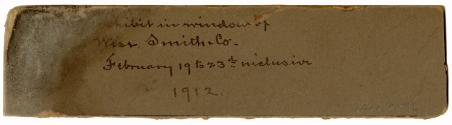 Exhibit in window of
Wise Smith & Co.
February 19 to 23rd inclusive
1912.